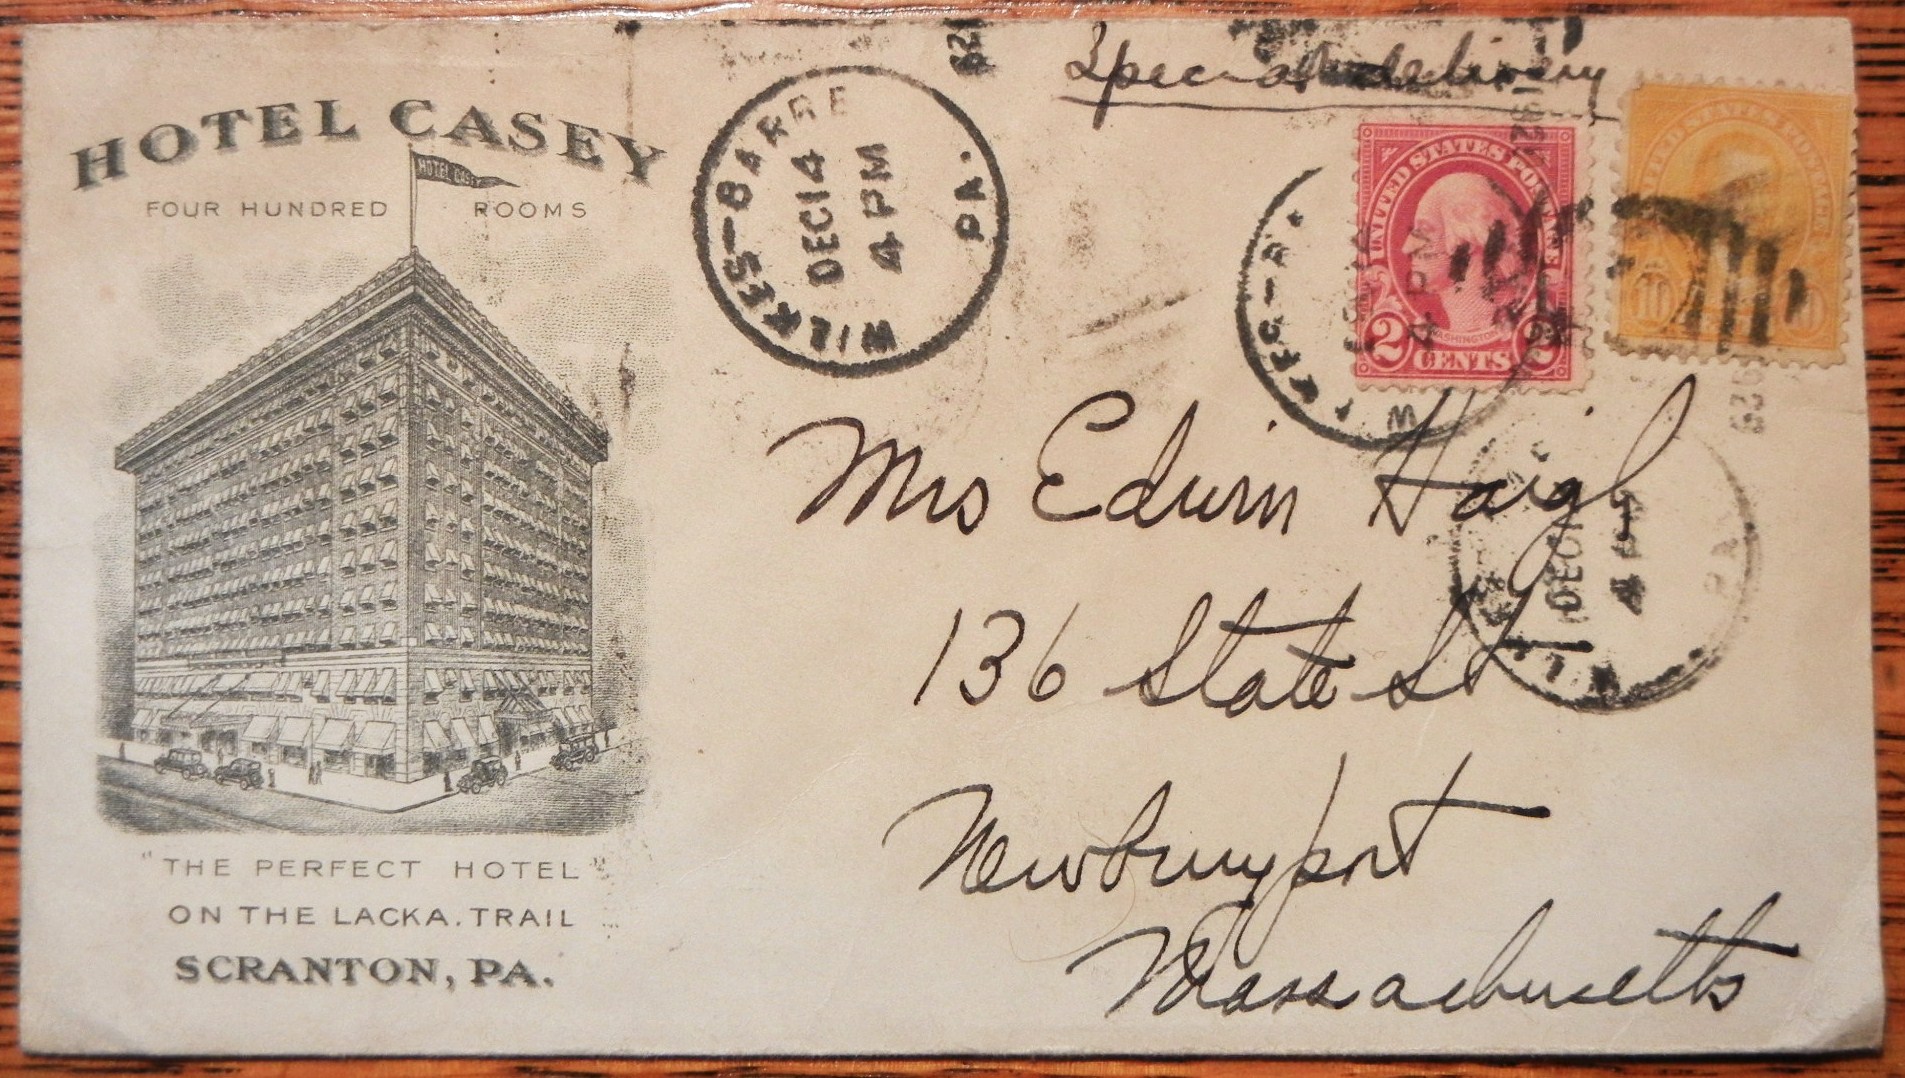 HOTEL CASEY
HOTEL CASEY
FOUR HUNDRED ROOMS
"THE PERFECT HOTEL"
ON THE LACKA. TRAIL
SCRANTON, PA.
WILKES-BARRE PA.
DEC 14
4 PM
Special delivery
UNITED STATES POSTAGE
WASHINGTON
2 CENTS 2
UNITED STATES POSTAGE
10 10
4 PM
Mrs Edwin Haigh
136 State St
Newburyport
Massachusetts
DEC
4
PA